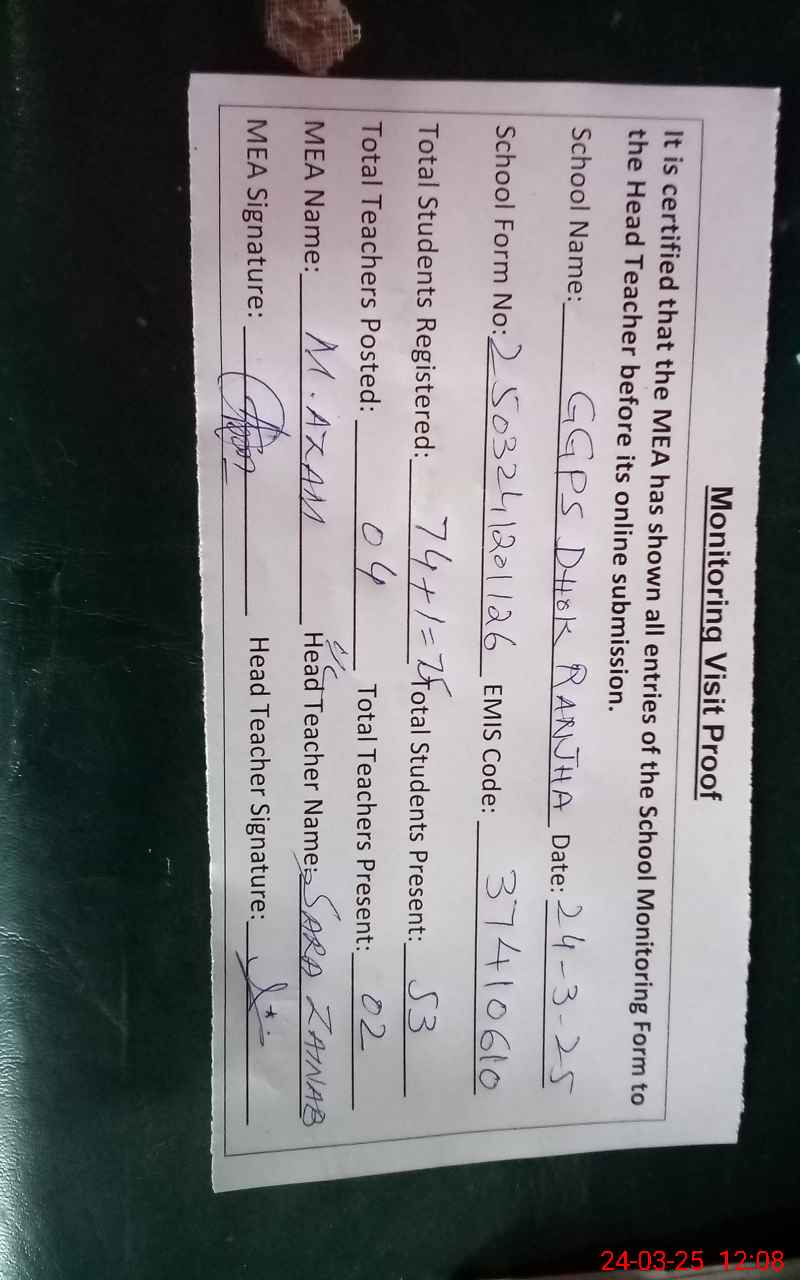 Monitoring Visit Proof
It is certified that the MEA has shown all entries of the School Monitoring Form to
the Head Teacher before its online submission.
School Name: GGPS DHOK RANJHA Date: 24-3-25
School Form No: 2503241201126 EMIS Code: 37410610
Total Students Registered: 74+1=75 Total Students Present: 53
Total Teachers Posted: 04 Total Teachers Present: 02
MEA Name: M. AZAM Head Teacher Name: SARA ZAINAB
MEA Signature: Head Teacher Signature:
24-03-25 12:08